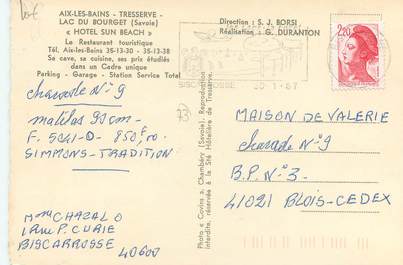 AIX-LES-BAINS - TRESSERVE -
LAC DU BOURGET (Savoie)
« HOTEL SUN BEACH »
Le Restaurant touristique
Tél. Aix-les-Bains 35-13-30 - 35-13-38
Sa cave, sa cuisine, ses prix étudiés
dans un Cadre unique
Parking - Garage - Station Service Total
Direction : S. J. BORSI
Réalisation : G. DURANTON
2,20
30-1-87
charade N°9
73
matelas 90 cm -
F. 5041-0 - 850F00 -
SIMMONS - TRADITION
Mme CHAZALO
1 Rue P. CURIE
BISCARROSSE
40600
Photo « Covins » Chambéry (Savoie). Reproduction
interdite, réservée à la Sté Hôtelière de Tresserve.
MAISON DE VALERIE
charade N°9
B.P. N°3 -
41021 BLOIS-CEDEX